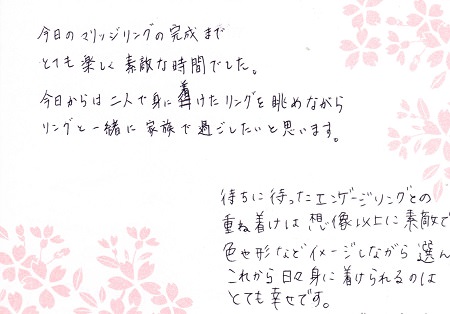 今日のマリッジリングの完成まで
とても楽しく素敵な時間でした。
今日からは二人で身に着けたリングを眺めながら
リングと一緒に家族で過ごしたいと思います。
待ちに待ったエンゲージリングとの
重ね着けは想像以上に素敵で
色や形などイメージしながら選ん
これから日々身に着けられるのは
とても幸せです。